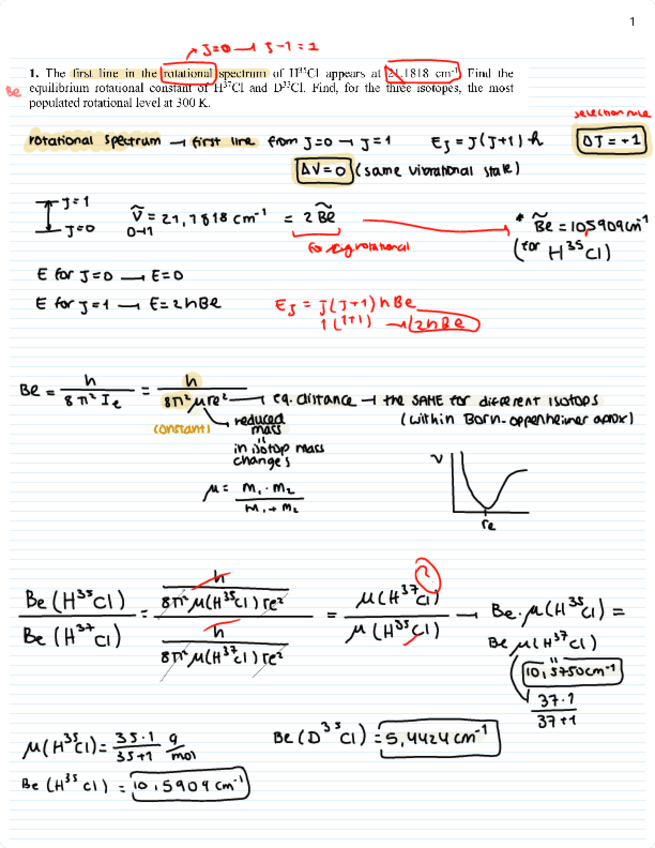 1
J=0 → J-1 = 1
1. The first line in the rotational spectrum of H³⁵Cl appears at 21.1818 cm⁻¹. Find the
Be equilibrium rotational constant of H³⁷Cl and D³⁵Cl. Find, for the three isotopes, the most
populated rotational level at 300 K.
selection rule
rotational spectrum → first line from J=0 → J=1 EJ = J(J+1) h ΔJ = +1
ΔV=0 (same vibrational state)
J=1
J=0
ṽ = 21,1818 cm⁻¹ = 2 B̃e * B̃e = 10,5909 cm⁻¹
0→1
(for H³⁵Cl)
E for J=0 → E=0
E for J=1 → E=2hBe
EJ = J(J+1)hBe
1(1+1) → 2hBe
Be = h / 8π² Ie = h / 8π²μre² → eq. distance → the SAME for different isotops
(constant) reduced mass (within Born-oppenheimer aprox)
in isotop mass
changes
V
μ = m₁ · m₂ / m₁ + m₂
re
Be (H³⁵Cl) / Be (H³⁷Cl) = h / 8π²μ(H³⁵Cl)re² / h / 8π²μ(H³⁷Cl)re² = μ(H³⁷Cl) / μ(H³⁵Cl) → Be·μ(H³⁵Cl) =
?
Be μ(H³⁷Cl)
10,5750cm⁻¹
37·1 / 37+1
μ(H³⁵Cl) = 35·1 / 35+1 g/mol Be (D³⁵Cl) = 5,4424 cm⁻¹
Be (H³⁵Cl) = 10,5909 cm⁻¹